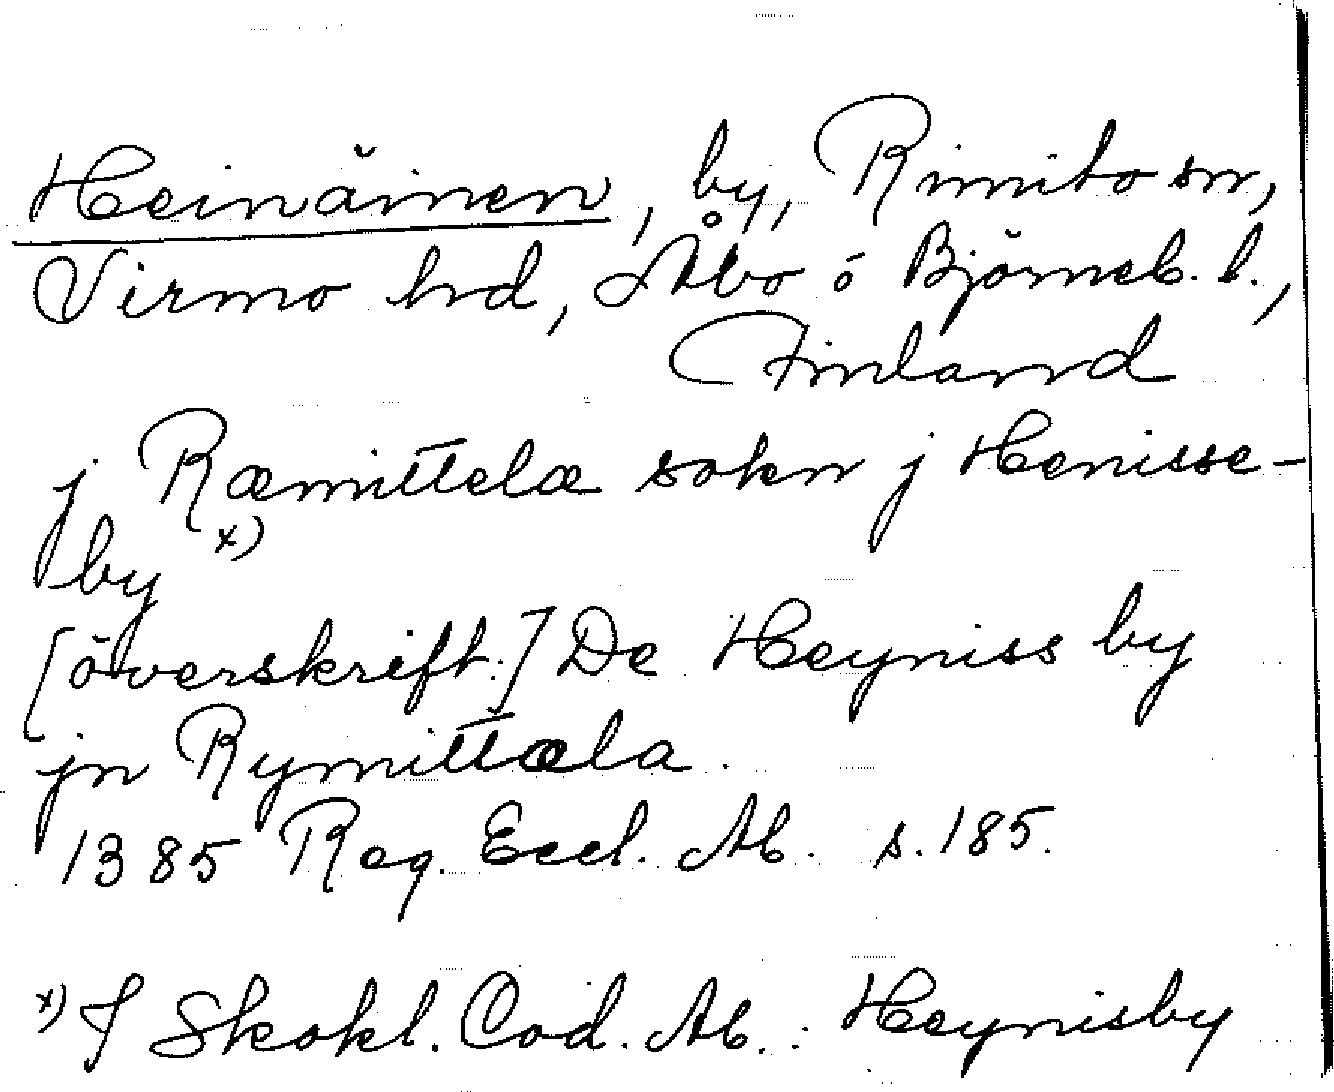 Heinäinen, by, Rimito sn,
Virmo hrd, Åbo ó Björneb. l.,
Finland
j Ræmittelæ sokn j Henisse-
by x)
[överskrift:] De Heyniss by
jn Rymittæla.
1385 Reg. Eccl. Ab. s. 185.
x) I Skokl. Cod. Ab.: Heynisby